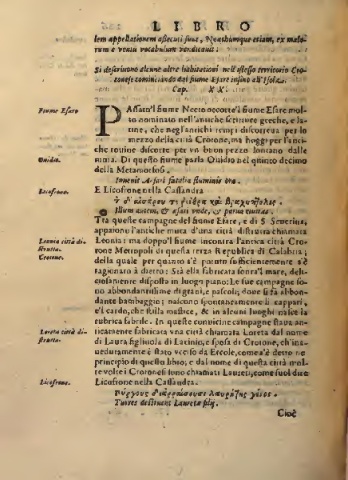 LIBRO
lem appellationem assecuti sunt, Neæthumque etiam, ex malo-
rum e ventu vocabulum vendicauit.
Si descriuono alcune altre habitationi nell'istesso territorio Cro-
tonese cominciando dal fiume Esaro insino all'Isola.
Cap. XX.
Fiume Esaro
PAssato'l fiume Neeto occorre'l fiume Esare mol-
to nominato nell'antiche scritture greche, e la-
tine, che negl'antichi tempi discorreua per lo
mezzo della città Crotone, ma hoggi per l'anti-
che rouine discorre per vn buon prezzo lontano dalle
Ouidio.
mura. Di questo fiume parla Ouidio nel quinto decimo
della Metamorfosi.
Inuenit Æsari fatalia fluminis ora.
Licofrone.
E Licofrone nella Cassandra
Illum autem, & æsari vnde, & parua ciuitas.
Tra queste campagne del fiume Esare, e di S. Seuerina,
appaiono l'antiche mura d'vna città distrutta chiamata
Leonia città di-
strutta.
Leonia: ma doppo'l fiume incontra l'antica città Cro-
Crotone.
tone Metropoli di questa terza Republica di Calabria;
della quale per quanto s'è potuto sofficientemente s'è
ragionato à dietro: Stà ella fabricata soura'l mare, deli-
tiosamente disposta in luogo piano: Le sue campagne so-
no abbondantissime di grani, e pascoli; doue si fà abbon-
dante bambaggio; nalcono spontaneamente li cappari,
e'l cardo, che stilla mastice, & in alcuni luoghi nasce la
rubrica fabrile. In queste conuicine campagne staua an-
Laureta città di-
strutta.
ticamente fabricata vna città chiamata Laureta dal nome
di Laura figliuola di Lacinio, e sposa di Crotone, ch'ina-
uedutamente è stato vcciso da Ercole, com'à detto ne
principio di questo libro; e dal nome di questa città mol-
te volte i Crotonesi sono chiamati Laureti, come suol dire
Licofrone.
Licofrone nella Cassandra.
Turres destinent Lauretæ filij.
Cioè